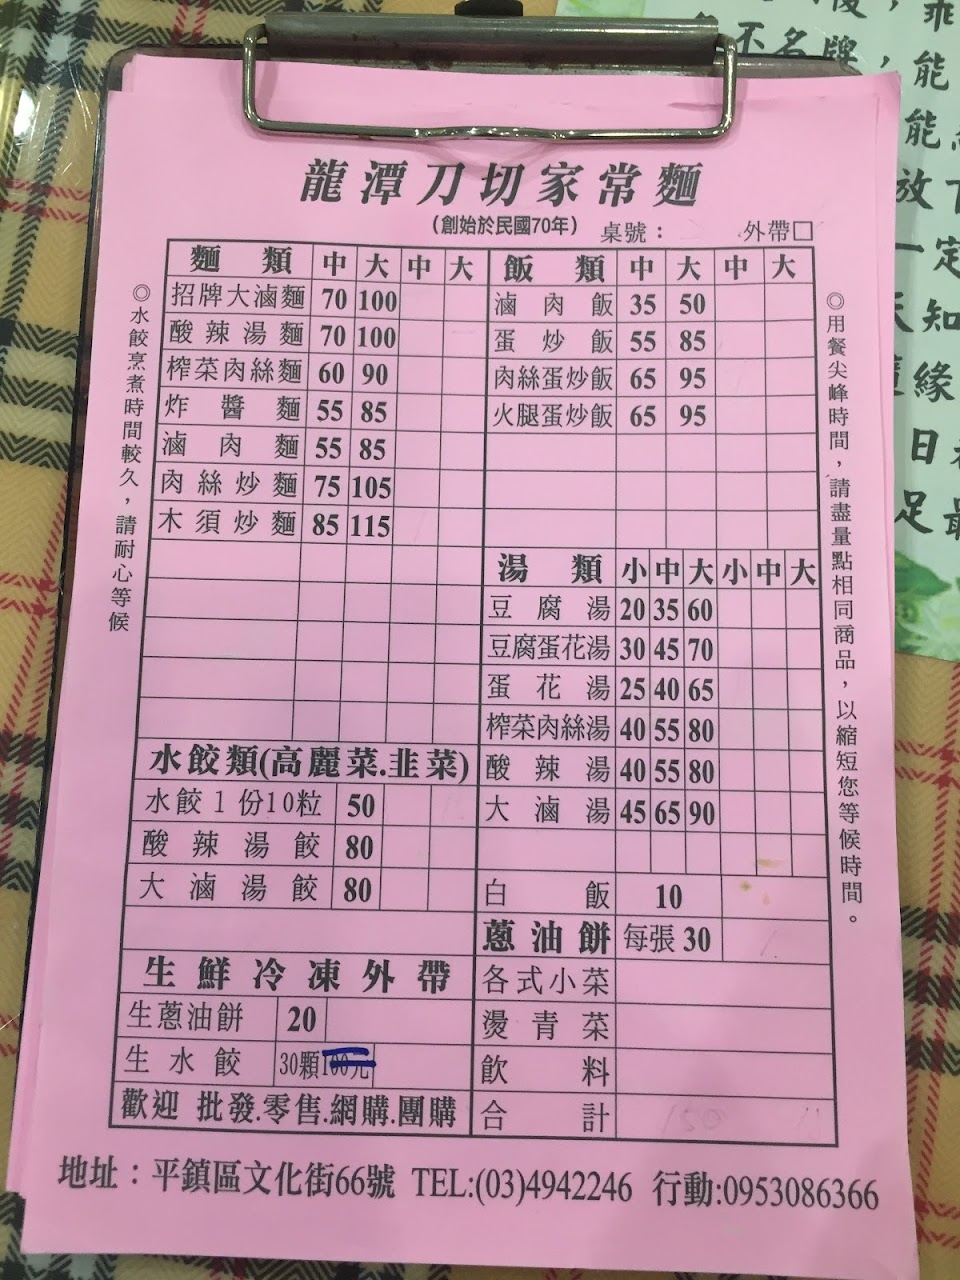 龍潭刀切家常麵
(創始於民國70年) 桌號： 外帶□
麵類 中 大 中 大
招牌大滷麵 70 100
酸辣湯麵 70 100
榨菜肉絲麵 60 90
炸醬麵 55 85
滷肉麵 55 85
肉絲炒麵 75 105
木須炒麵 85 115
水餃類(高麗菜.韭菜)
水餃1份10粒 50
酸辣湯餃 80
大滷湯餃 80
生鮮冷凍外帶
生蔥油餅 20
生水餃 30顆100元
歡迎 批發.零售.網購.團購
飯類 中 大 中 大
滷肉飯 35 50
蛋炒飯 55 85
肉絲蛋炒飯 65 95
火腿蛋炒飯 65 95
湯類 小 中 大 小 中 大
豆腐湯 20 35 60
豆腐蛋花湯 30 45 70
蛋花湯 25 40 65
榨菜肉絲湯 40 55 80
酸辣湯 40 55 80
大滷湯 45 65 90
白飯 10
蔥油餅 每張30
各式小菜
燙青菜
飲料
合計
◎水餃烹煮時間較久，請耐心等候
◎用餐尖峰時間，請盡量點相同商品，以縮短您等候時間。
地址：平鎮區文化街66號 TEL:(03)4942246 行動:0953086366